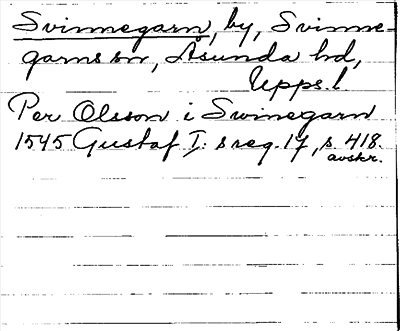 Svinnegarn, by, Svinne-
garns sn, Åsunda hd,
Upps. l
Per Olsson i Swinegarn
1545 Gustaf I:s reg. 17, s. 418.
avskr.